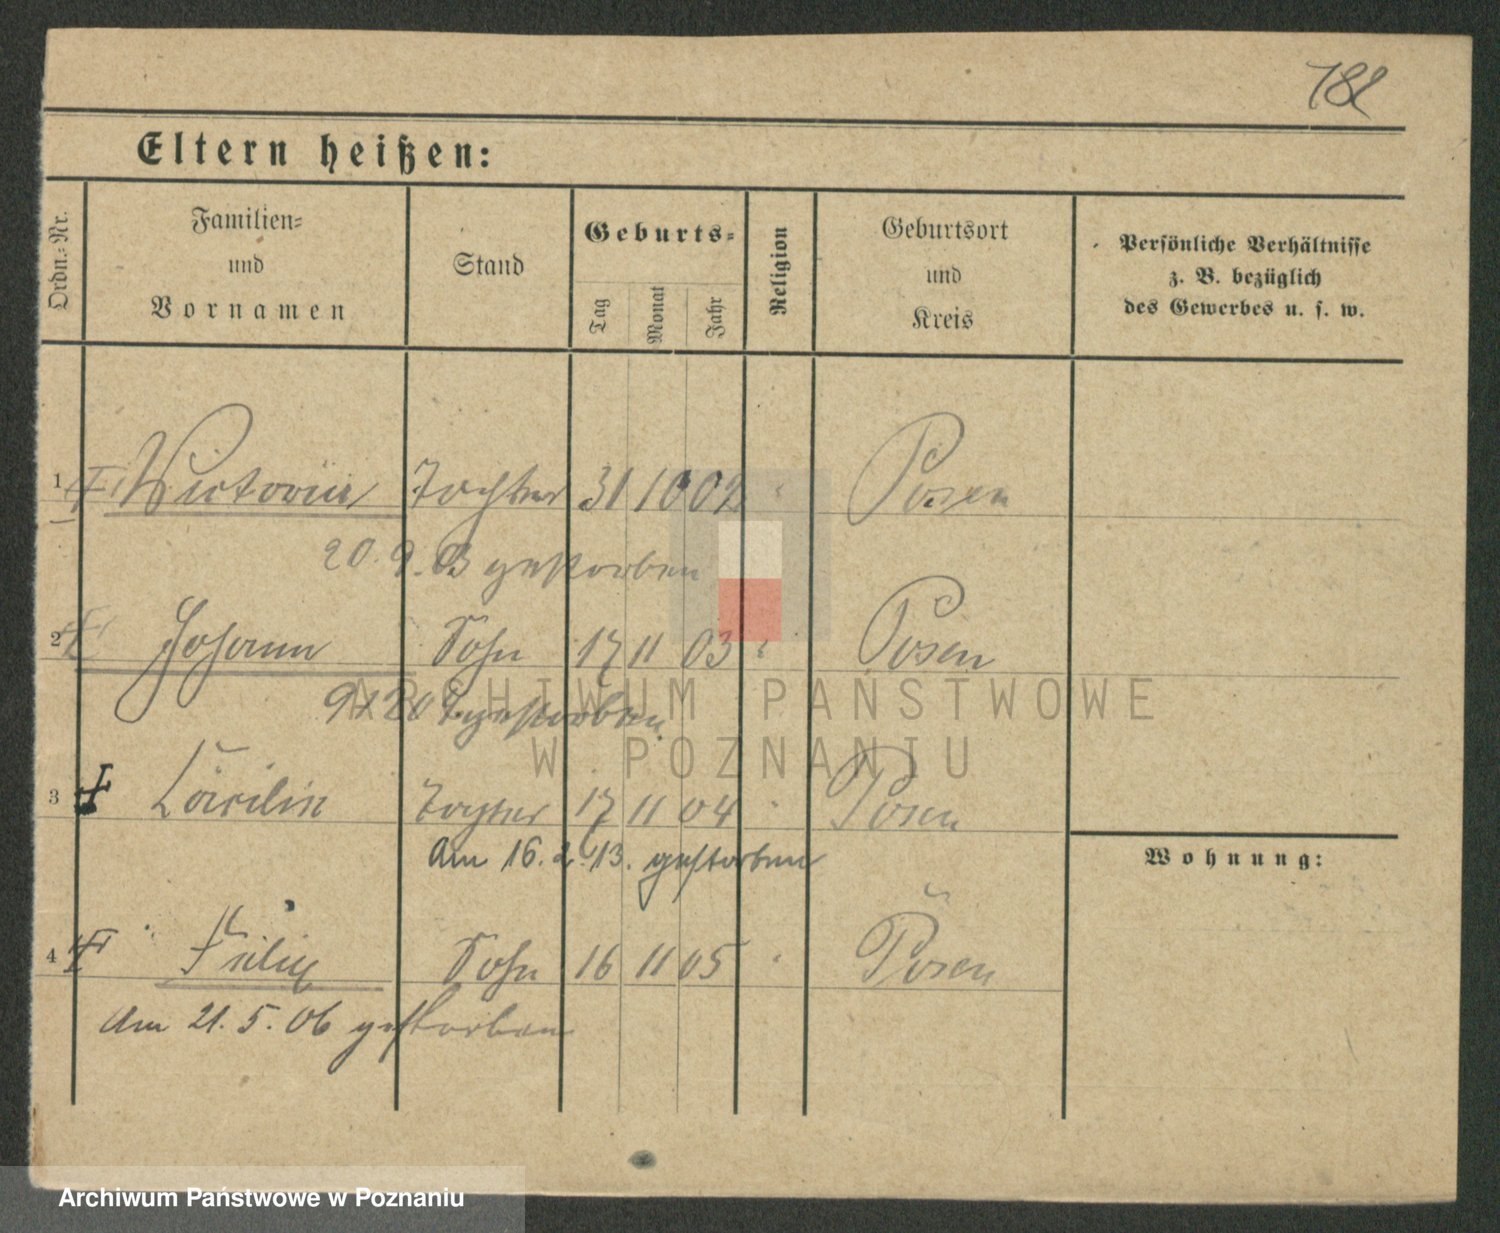 182
Eltern heißen:
Ordn.-Nr.
Familien- und Vornamen
Stand
Geburts-
Tag
Monat
Jahr
Religion
Geburtsort und Kreis
Persönliche Verhältnisse
z. B. bezüglich
des Gewerbes u. s. w.
1 Victoria Tochter 31 10 02 Posen
20. 9. 03 gestorben
2 Johann Sohn 17 11 03 Posen
gestorben
3 Cäcilie Tochter 17 11 04 Posen
Am 16. 2. 13. gestorben
Wohnung:
4 Felix Sohn 16 11 05 Posen
Am 21. 5. 06 gestorben
ARCHIWUM PAŃSTWOWE
W POZNANIU
Archiwum Państwowe w Poznaniu